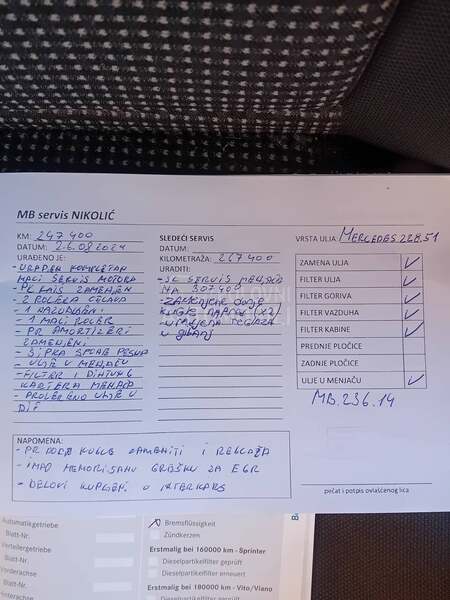 MB servis NIKOLIĆ
KM: 247 400
DATUM: 26.08.2024
URAĐENO JE:
- URAĐEN KOMPLETAN
MALI SERVIS MOTORA
- PK KAIS ZAMENJEN
- 2 ROLERA
- 1 NAZUBLJENI
- 1 MALI ROLER
- PR AMORTIZERI
ZAMENJENI
- ŠIPKA
- ULJE U MENJAČU
- FILTER I DIHTUNG
KARTERA MENJAČA
- PROVERENO ULJE U
DIF
SLEDEĆI SERVIS
DATUM:
KILOMETRAŽA: 267400
URADITI:
- SL SERVIS MENJAČA
NA 307400
- ZAMENJENE DONJE
KUGLE NAPRED (X2)
VRSTA ULJA MERCEDES 228.51
ZAMENA ULJA ✓
FILTER ULJA ✓
FILTER GORIVA ✓
FILTER VAZDUHA ✓
FILTER KABINE ✓
PREDNJE PLOČICE
ZADNJE PLOČICE
ULJE U MENJAČU ✓
MB.236.14
NAPOMENA:
- PR DONJE KUGLE ZAMENITI I REGLAŽA
- IMAO MEMORISANU GREŠKU ZA EGR
- DELOVI KUPLJENI U INTERKARS
pečat i potpis ovlašćenog lica
Automatikgetriebe
Blatt-Nr.
Verteilergetriebe
Blatt-Nr.
Vorderachse
Blatt-Nr.
Hinterachse
Bremsflüssigkeit
Zündkerzen
Erstmalig bei 160000 km - Sprinter
Dieselpartikelfilter geprüft
Dieselpartikelfilter erneuert
Erstmalig bei 180000 km - Vito/Viano